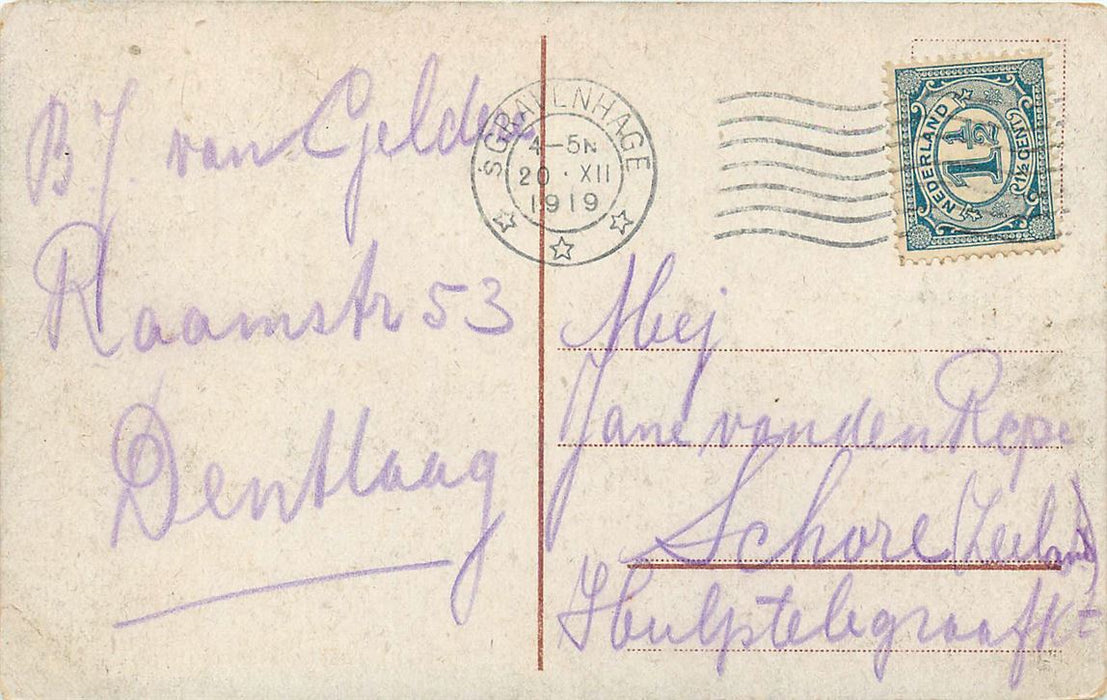 B. J. van Gelder
Raamstr 53
Den Haag
'SGRAVENHAGE
4-5N
20·XII
1919
NEDERLAND
1½
1½ CENT
Mej
Jane van den
Schore (Zeeland)
Hulptelegraafk=